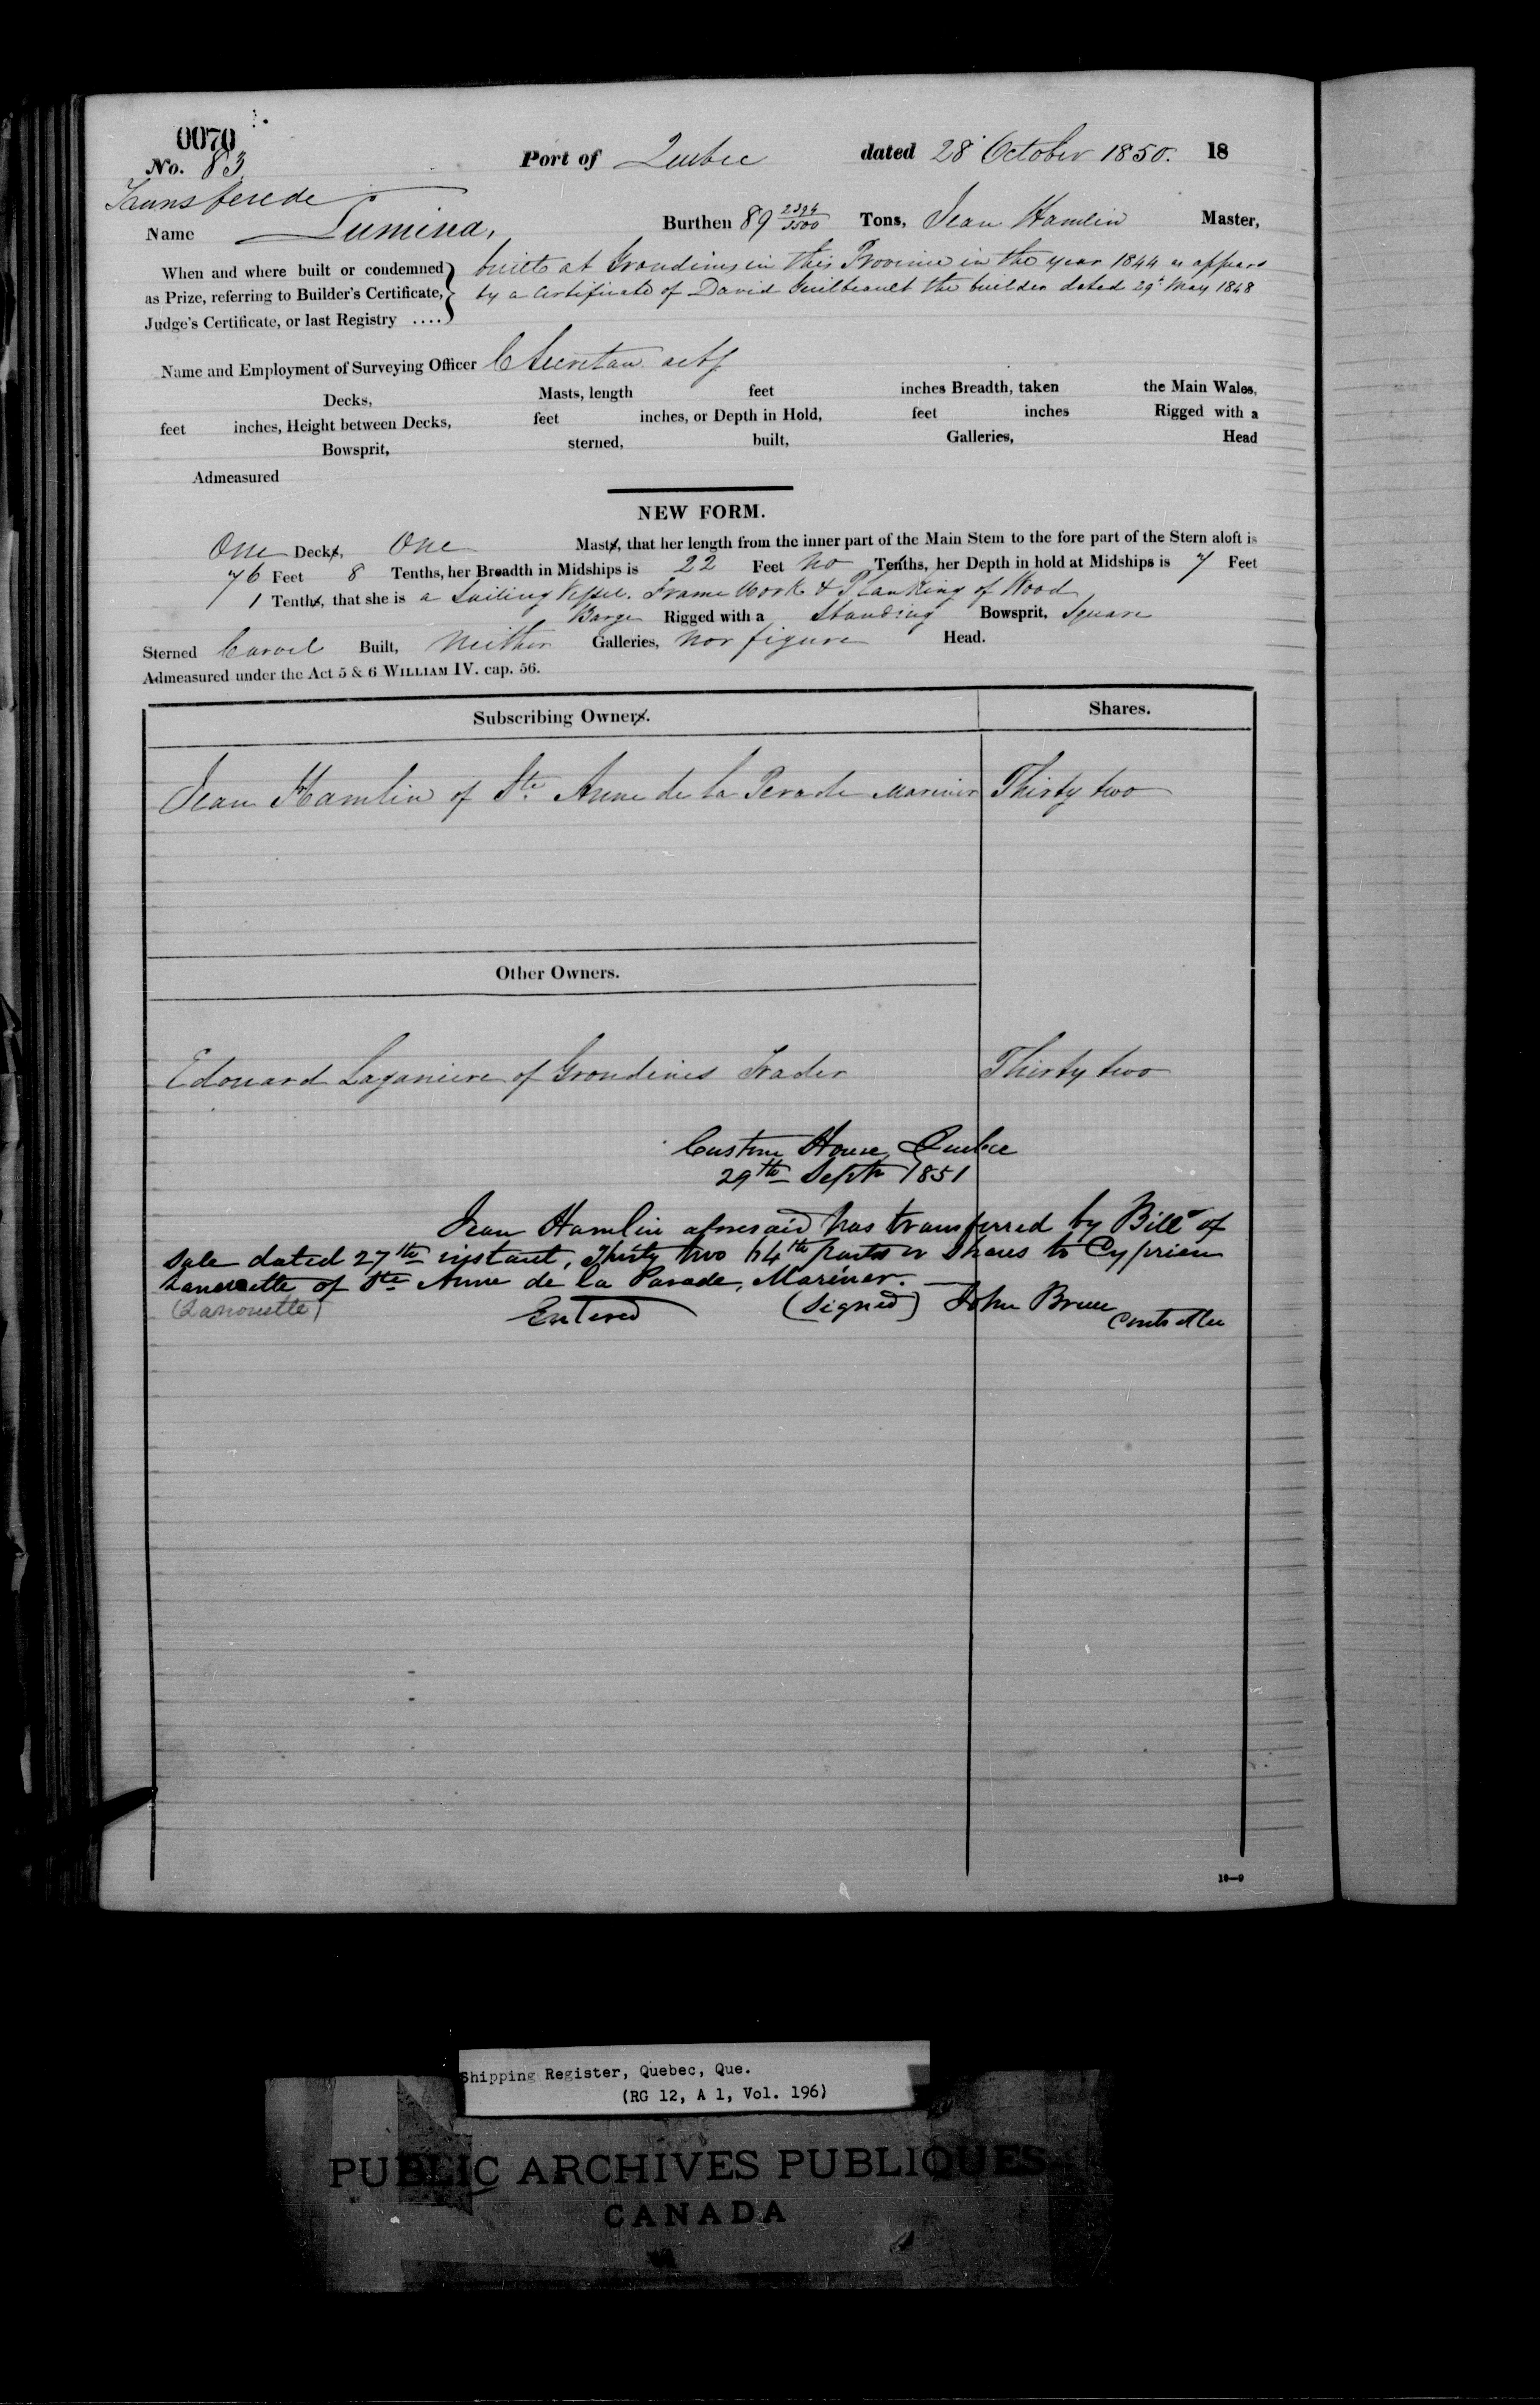 0070
No. 83 Port of Quebec dated 28 October 1850. 18
Transferede
Name Lumina, Burthen 89 2394/3500 Tons, Jean Hamlin Master,
When and where built or condemned built at Grondines in this Province in the year 1844 as appears
as Prize, referring to Builder's Certificate, by a Certificate of David Guilbeault the builder dated 29th May 1848
Judge's Certificate, or last Registry ....
Name and Employment of Surveying Officer C Secretan
Decks, Masts, length feet inches Breadth, taken the Main Wales,
feet inches, Height between Decks, feet inches, or Depth in Hold, feet inches Rigged with a
Bowsprit, sterned, built, Galleries, Head
Admeasured
NEW FORM.
One Decks, One Masts, that her length from the inner part of the Main Stem to the fore part of the Stern aloft is
76 Feet 8 Tenths, her Breadth in Midships is 22 Feet no Tenths, her Depth in hold at Midships is 7 Feet
1 Tenths, that she is a Sailing Vessel. Frame Work & Planking of Wood
Barge Rigged with a Standing Bowsprit, Square
Sterned Carvel Built, Neither Galleries, nor figure Head.
Admeasured under the Act 5 & 6 WILLIAM IV. cap. 56.
Subscribing Owners. Shares.
Jean Hamlin of Ste Anne de la Perade Mariner Thirty two
Other Owners.
Edouard Laganiere of Grondines Trader Thirty two
Custom House, Quebec
29th Septr 1851
Jean Hamlin aforesaid has transferred by Bill of
Sale dated 27th instant, Thirty two 64th parts or Shares to Cyprien
Lanouette of Ste Anne de la Parade, Mariner.
(Lanouette) Entered (Signed) John Bruce
Controller
10—9
Shipping Register, Quebec, Que.
(RG 12, A 1, Vol. 196)
PUBLIC ARCHIVES PUBLIQUES
CANADA